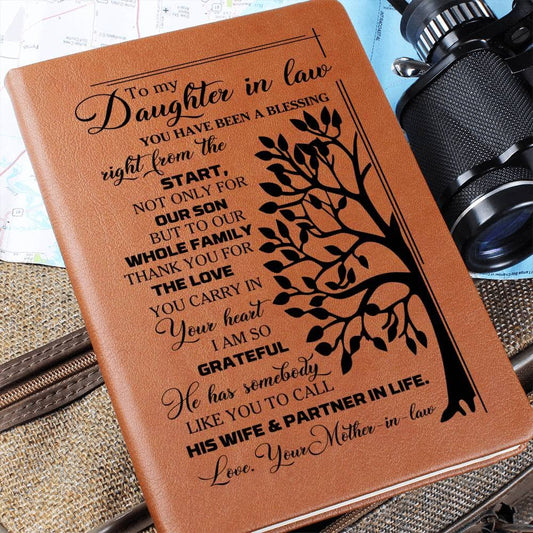 To my
Daughter in law
YOU HAVE BEEN A BLESSING
right from the
START,
NOT ONLY FOR
OUR SON
BUT TO OUR
WHOLE FAMILY
THANK YOU FOR
THE LOVE
YOU CARRY IN
Your heart
I AM SO
GRATEFUL
He has somebody
LIKE YOU TO CALL
HIS WIFE & PARTNER IN LIFE.
Love, Your Mother-in-law